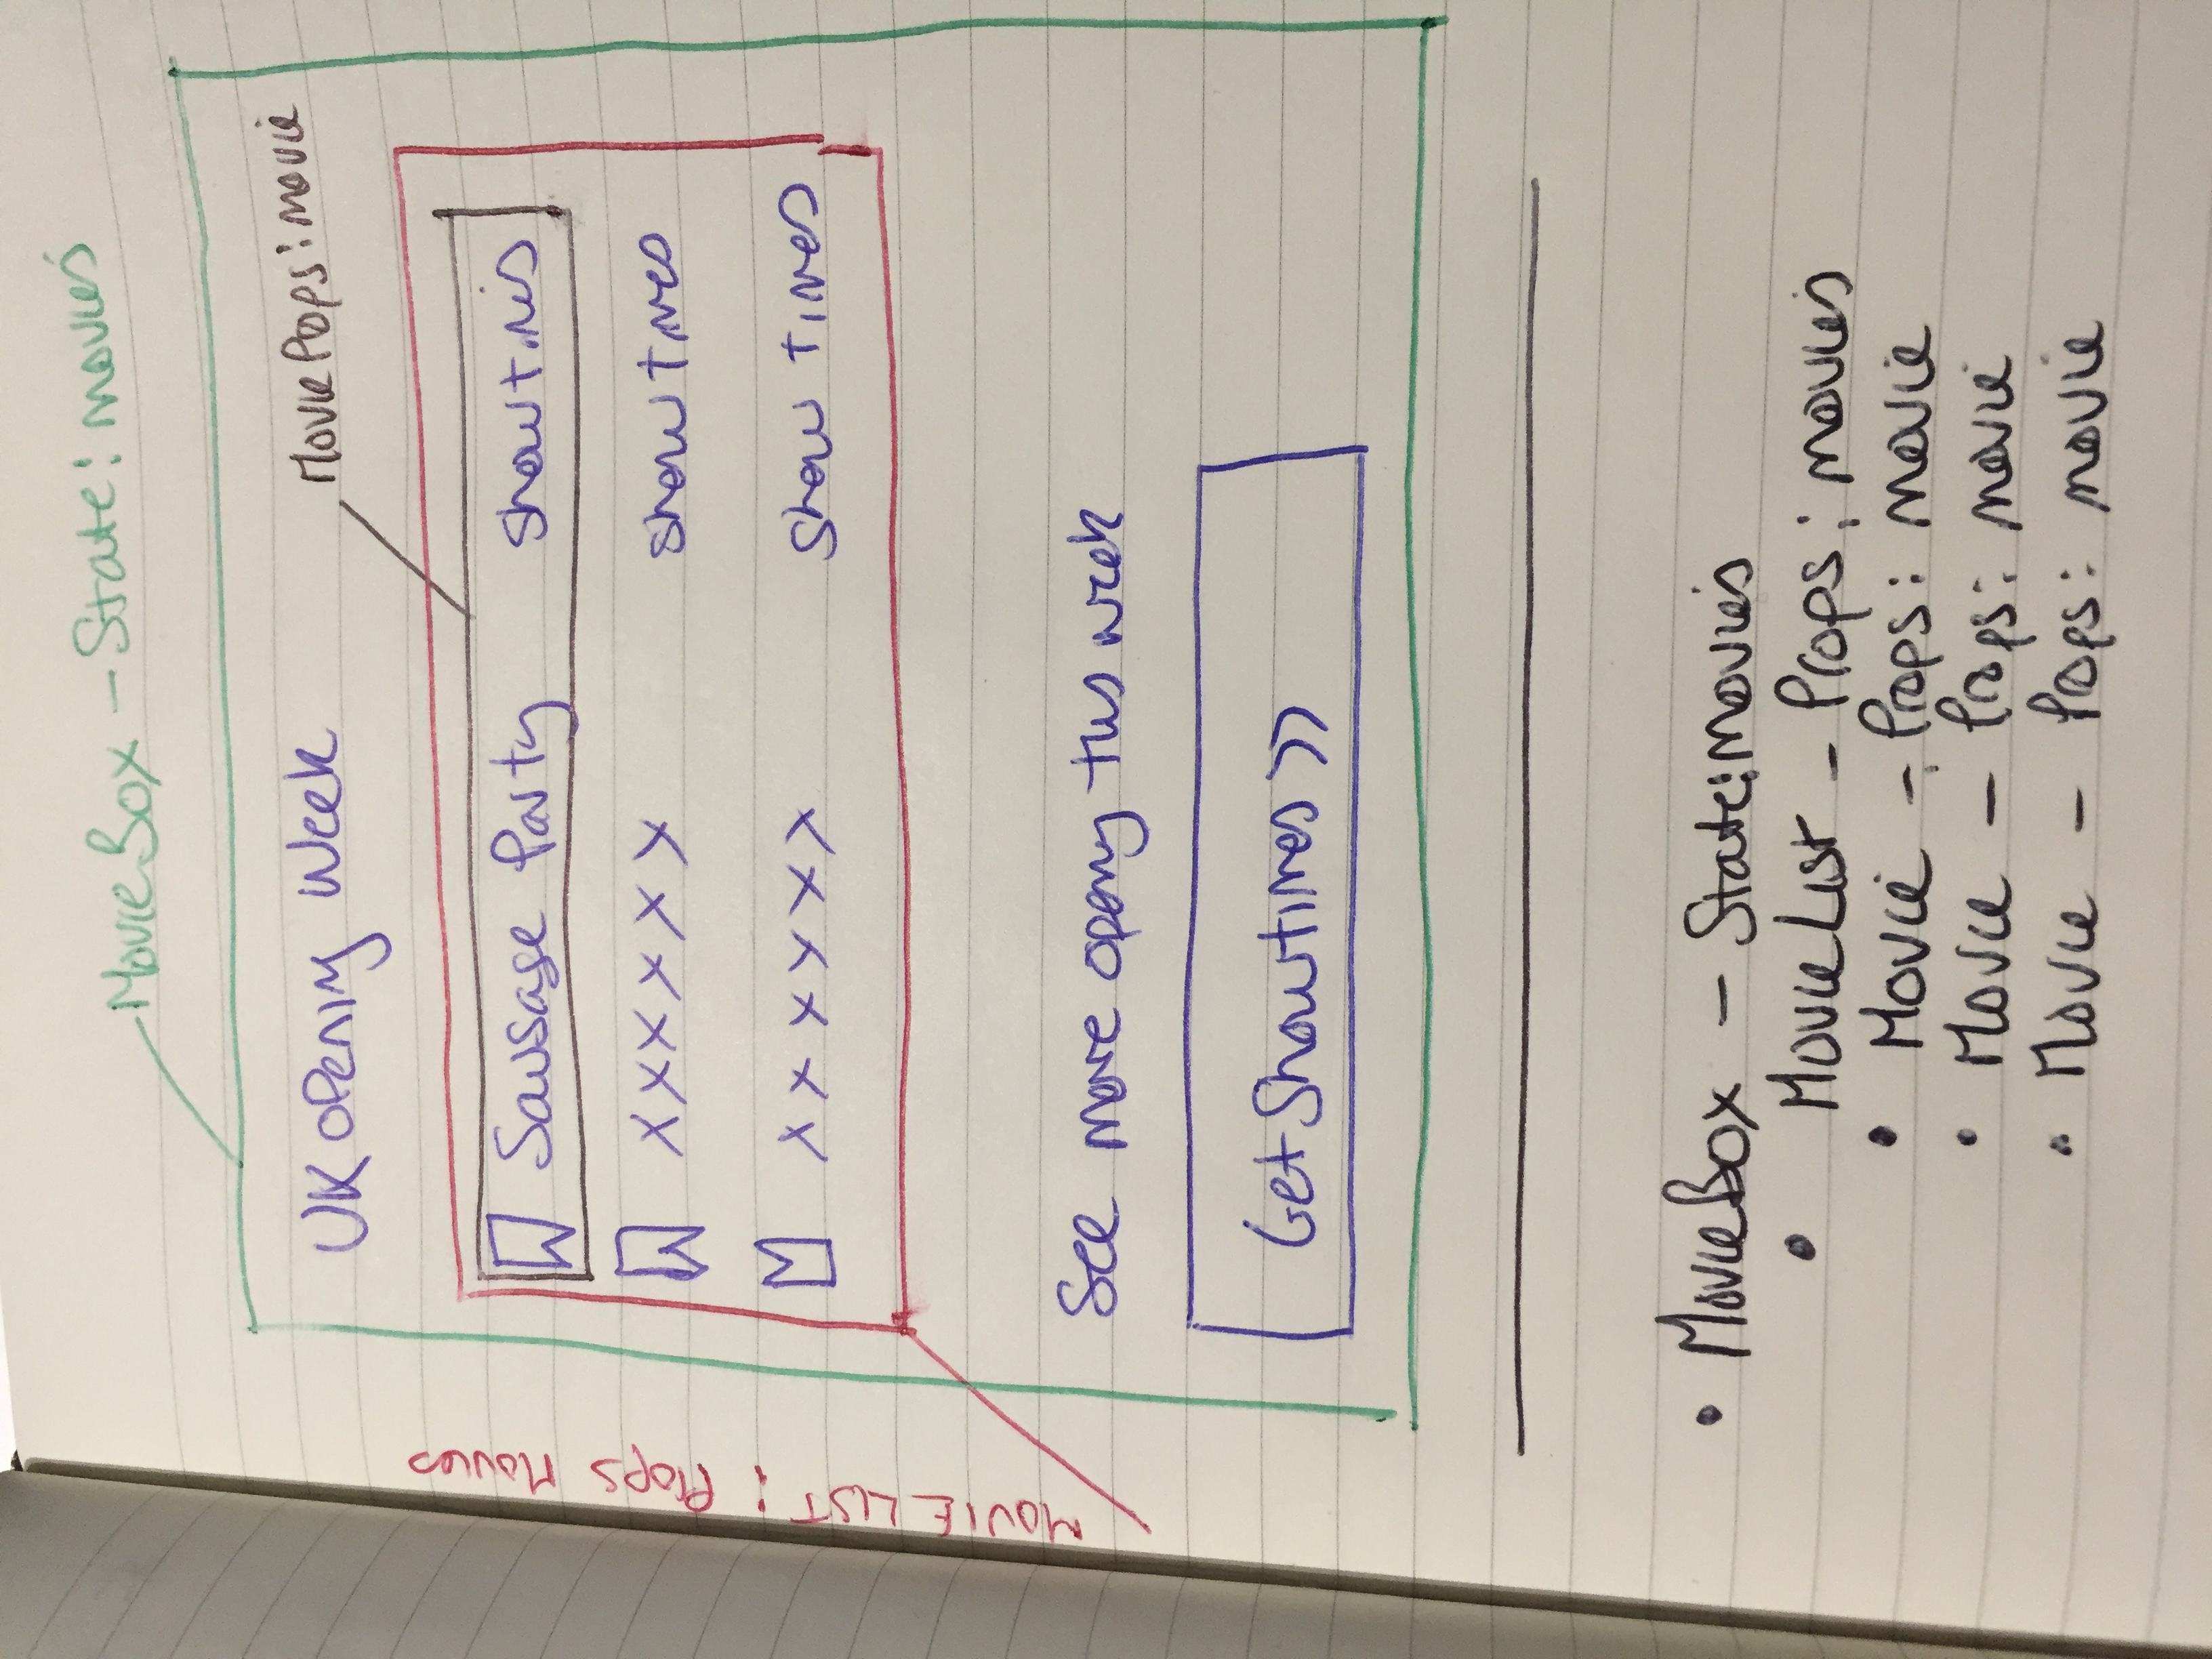 MovieBox - State: movies
UK opening Week
Movie Props: movie
MOVIE LIST : Props Movies
Sausage Party showtimes
xxxxxx showtimes
xxxxxx show times
See more opening this week
Get Showtimes >>
• MovieBox - State: movies
• MovieList - Props: movies
• Movie - Props: movie
• Movie - Props: movie
• Movie - Props: movie